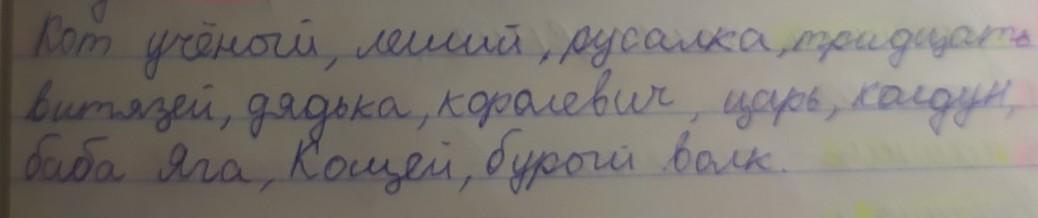 Кот учёный, леший, русалка, тридцать
витязей, дядька, королевич, царь, колдун,
баба Яга, Кощей, бурый волк.